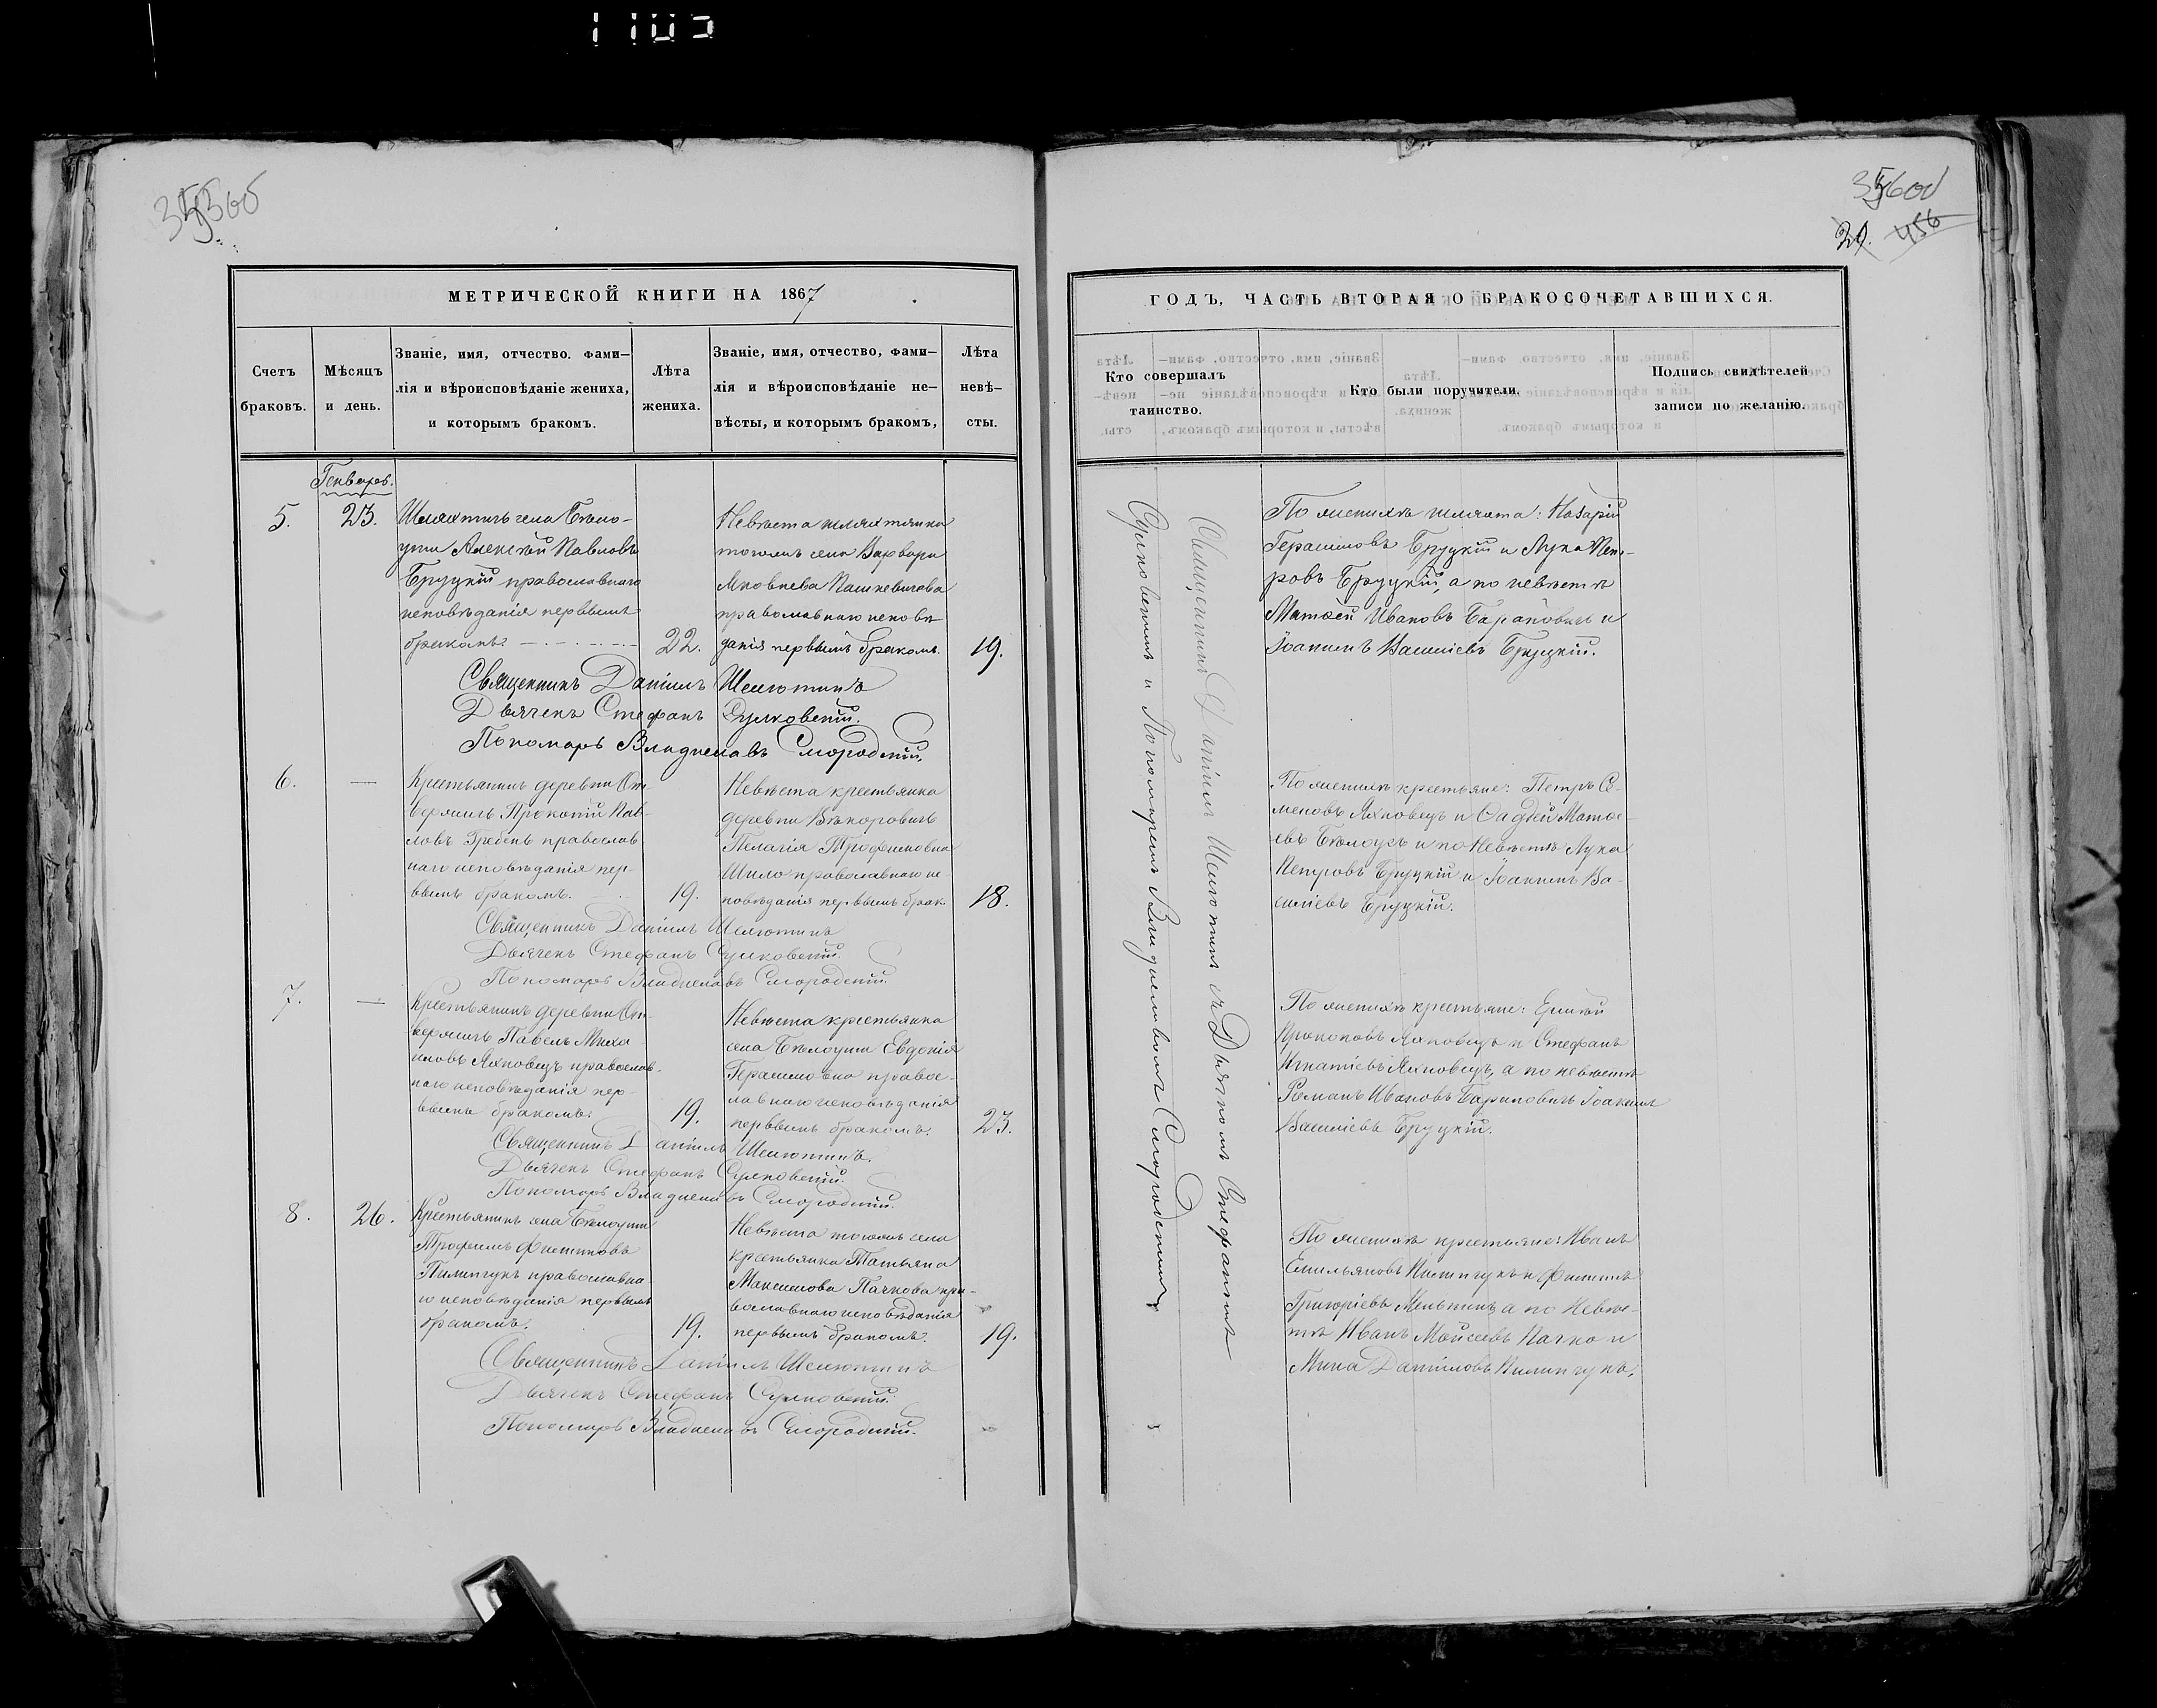 1103
355об
МЕТРИЧЕСКОЙ КНИГИ НА 1867
Счетъ браковъ.
Мѣсяцъ и день.
Званіе, имя, отчество. фами-
лія и вѣроисповѣданіе жениха,
и которымъ бракомъ.
Лѣта жениха.
Званіе, имя, отчество, фами-
лія и вѣроисповѣданіе не-
вѣсты, и которымъ бракомъ,
Лѣта невѣ-
сты.
Генварь.
5.
23.
Шляхтичъ села Бѣло-
уши Алексѣй Павловъ
Бруцкій православнаго
исповѣданія первымъ
бракомъ.
22.
Невѣста шляхтянка
тогожъ села Варвара
Яковлева Пашкевичова
православнаго исповѣ
данія первымъ бракомъ.
19.
Священникъ Даніилъ Шелютинъ
Дьячекъ Стефанъ Сулковскій.
Пономарь Владиславъ Смородскій.
6.
—
Крестьянинъ деревни От
вержичъ Прокопій Пав-
ловъ Гребень православ
наго исповѣданія пер-
вымъ бракомъ.
19.
Невѣста крестьянка
деревни Вѣкоровичъ
Пелагія Трофимовна
Шило православнаго ис
повѣданія первымъ брак.
18.
Священникъ Даніилъ Шелютинъ
Дьячекъ Стефанъ Сулковскій.
Пономарь Владиславъ Смородскій.
7.
—
Крестьянинъ деревни От-
вержичъ Павелъ Миха
иловъ Яхновецъ православ-
наго исповѣданія пер-
вымъ бракомъ.
19.
Невѣста крестьянка
села Бѣлоуши Евдокія
Герасимовна правос-
лавнаго исповѣданія
первымъ бракомъ.
23.
Священникъ Даніилъ Шелютинъ.
Дьячекъ Стефанъ Сулковскій.
Пономарь Владиславъ Смородскій.
8.
26.
Крестьянинъ села Бѣлоуши
Трофимъ Филиповъ
Пилипчукъ православна-
го исповѣданія первымъ
бракомъ.
19.
Невѣста тогожъ села
крестьянка Татьяна
Максимова Пачкова пра-
вославнаго исповѣданія
первымъ бракомъ.
19.
Священникъ Даніилъ Шелютинъ
Дьячекъ Стефанъ Сулковскій.
Пономарь Владиславъ Смородскій.
356
29. 456
ГОДЪ, ЧАСТЬ ВТОРАЯ О БРАКОСОЧЕТАВШИХСЯ.
Кто совершалъ
таинство.
Кто были поручители.
Подпись свидѣтелей
записи по желанію.
Священникъ Даніилъ Шелютинъ съ Дьячкомъ Стефаномъ
Сулковскимъ и Пономремъ Владиславомъ Смородскимъ
По женихѣ шляхта: Назарій
Герасимовъ Бруцкій и Лука Пет-
ровъ Бруцкій, а по невѣстѣ
Матѳей Ивановъ Барановичъ и
Іоакимъ Василіевъ Бруцкій.
По женихѣ крестьяне: Петръ Се-
меновъ Яхновецъ и Фадѣй Матѳе-
евъ Бѣлоусъ и по Невѣстѣ Лука
Петровъ Бруцкій и Іоакимъ Ва-
силіевъ Бруцкій.
По женихѣ крестьяне: Елисѣй
Прокоповъ Яхновецъ и Стефанъ
Игнатіевъ Яхновецъ, а по невѣстѣ
Романъ Ивановъ Бариловичъ Іоакимъ
Василіевъ Бруцкій.
По женихѣ крестьяне: Иванъ
Емильяновъ Пилипчукъ и Филипъ
Григоріевъ Мельникъ а по Невѣс-
тѣ Иванъ Мойсеевъ Пачко и
Мина Даніиловъ Пилипчукъ.